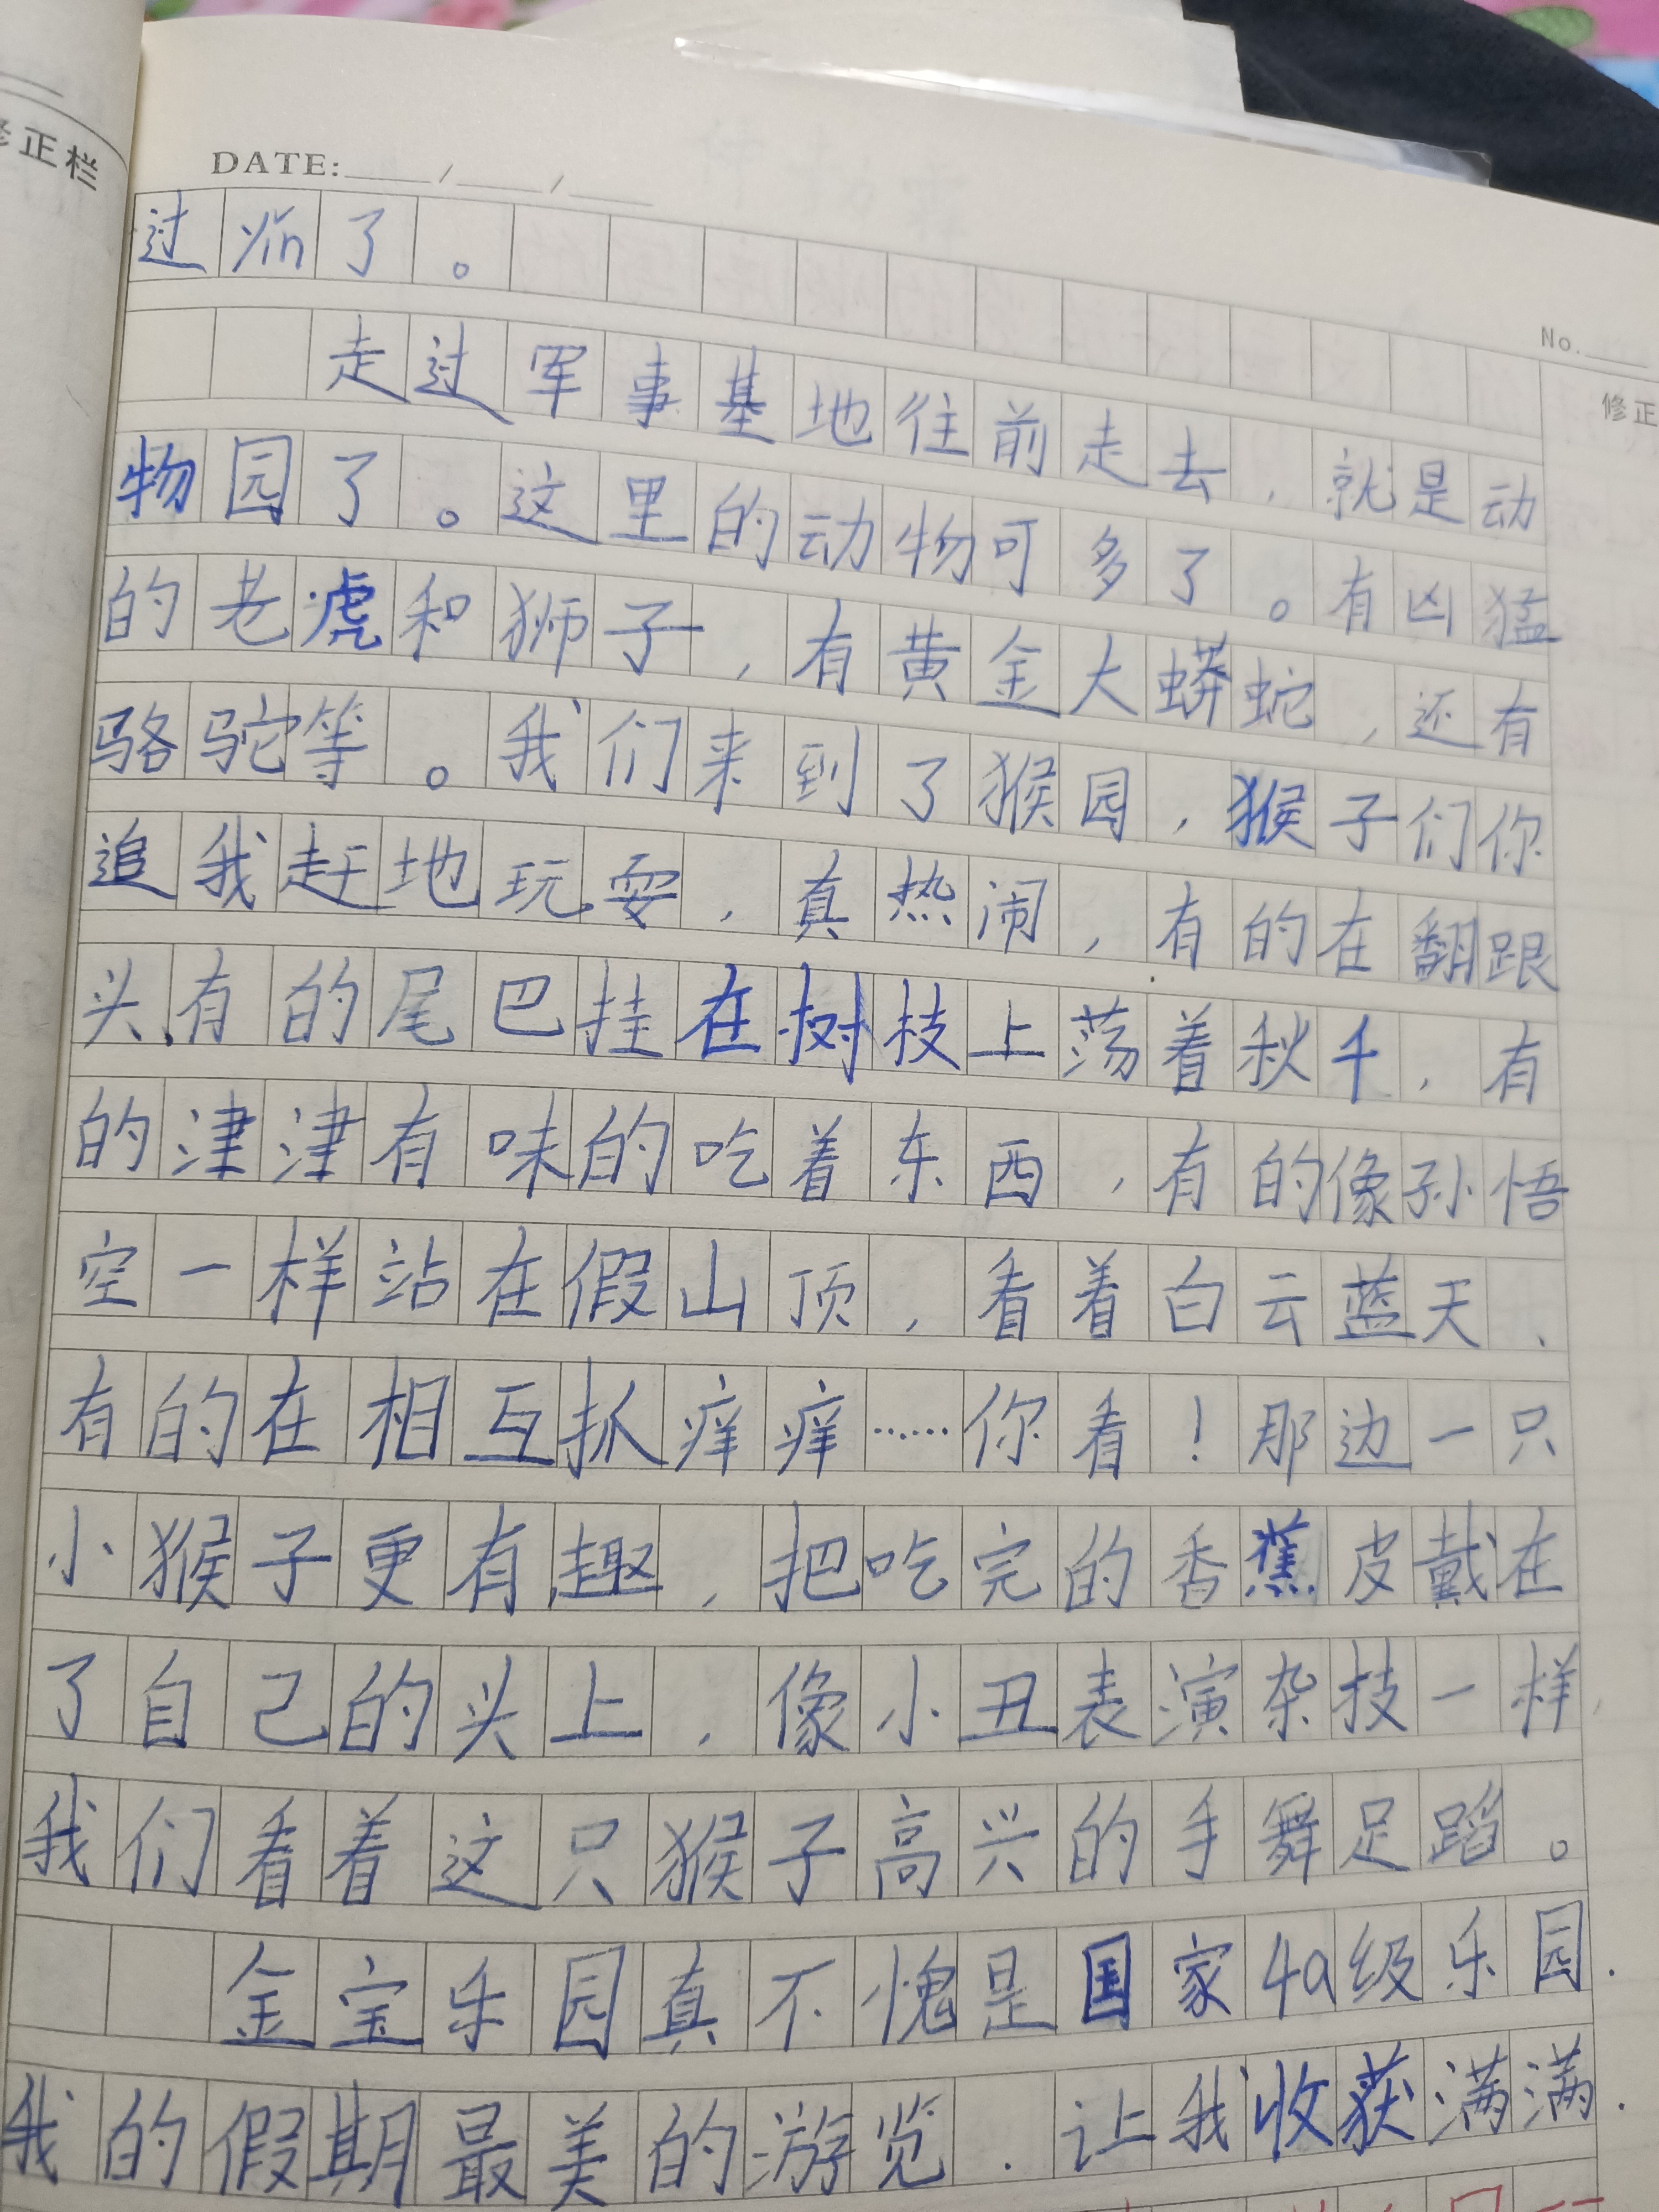 修正栏
DATE: / /
No.
修正
过yǐn了。
走过军事基地往前走去，就是动
物园了。这里的动物可多了。有凶猛
的老虎和狮子，有黄金大蟒蛇，还有
骆驼等。我们来到了猴园，猴子们你
追我赶地玩耍，真热闹，有的在翻跟
头，有的尾巴挂在树枝上荡着秋千，有
的津津有味的吃着东西，有的像孙悟
空一样站在假山顶，看着白云蓝天、
有的在相互抓痒痒……你看！那边一只
小猴子更有趣，把吃完的香蕉皮戴在
了自己的头上，像小丑表演杂技一样，
我们看着这只猴子高兴的手舞足蹈。
金宝乐园真不愧是国家4a级乐园.
我的假期最美的游览.让我收获满满.